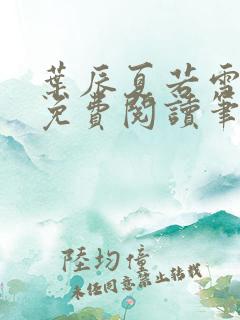 葉辰夏若雪
免費閱讀筆
陸均僮
未任同意禁止轉載